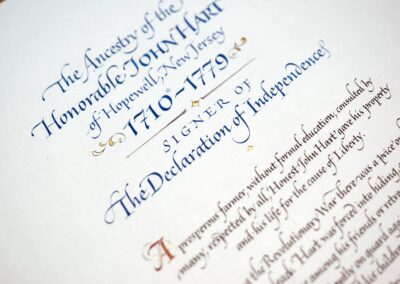 The Ancestry of the
Honorable JOHN HART
of Hopewell, New Jersey
1710~1779
SIGNER OF
The Declaration of Independence
A prosperous farmer, without formal education, consulted by
many, respected by all, 'Honest John Hart' gave his property
and his life for the cause of Liberty.
the Revolutionary War there was a 'price' on
Hart was forced into hiding,
among his friends or
on guard again
his children